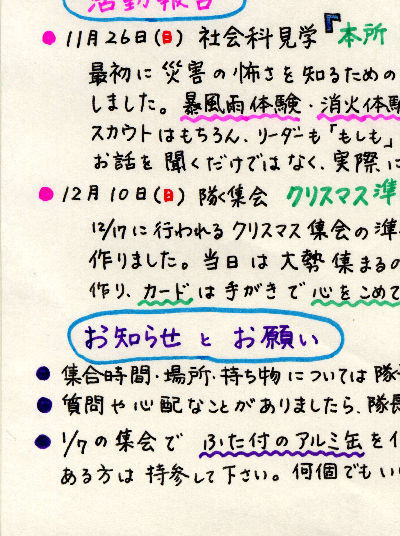 活動報告
11月26日(日) 社会科見学『本所
最初に災害の怖さを知るための
しました。暴風雨体験・消火体験
スカウトはもちろん、リーダーも「もしも」
お話を聞くだけではなく、実際に
12月10日(日) 隊集会 クリスマス準
12/17に行われるクリスマス集会の準
作りました。当日は大勢集まるの
作り、カードは手がきで心をこめて
お知らせとお願い
集合時間・場所・持ち物については隊
質問や心配なことがありましたら、隊長
1/7の集会で ふた付のアルミ缶を
ある方は持参して下さい。何個でもい